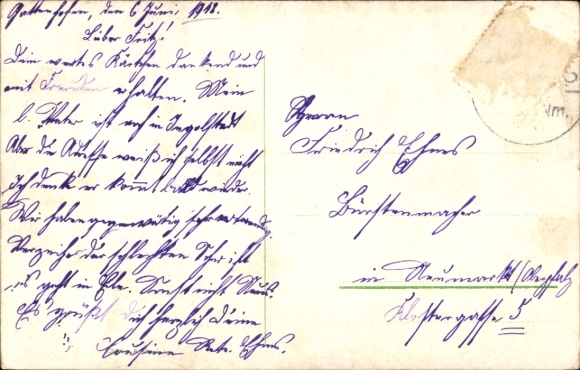 Gattenhofen, den 6 Juni, 1918.
Lieber Fritz!
Dein wertes Kärtchen dankend und
mit Freuden erhalten. Mein
l. Vater ist noch in Ingolstadt
Aber die Adresse weiß ich selbst nicht
Ich denke er kommt bald wieder.
Wir haben gegenwärtig sehr notwendig
Verzeihe der schlechten Schrift
es geht in Eile. Sonst nicht Neues.
Es grüßt dich herzlich Deine
Cousine Bab. Ehnes.
Herrn
Friedrich Ehnes
Bürstenmacher
in Neumarkt (Oberpfalz
Klostergasse 5